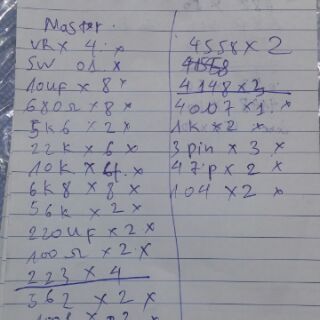 Master.
VR x 4. x
SW 01. x
10UF x 8 x
680Ω x 8 x
5K6 x 2 x
22K x 6 x
10K x 6 x
6K8 x 8 x
56K x 2 x
220UF x 2 x
100Ω x 2 x
223 x 4
362 x 2 x
4558 x 2
4148 x 2
4007 x 1. x
1K x 2 x
3 pin x 3 x
47p x 2 x
104 x 2 x